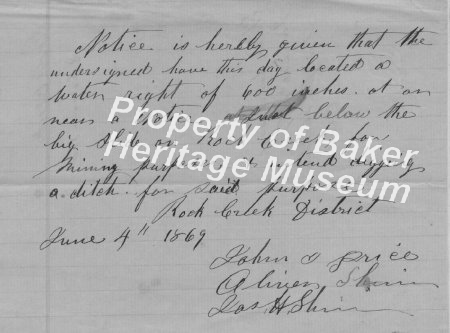 Notice is hereby given that the
undersigned have this day located a
water right of 600 inches at or
near a Notice below the
big on Rock Creek for
mining purposes
a ditch for said purpose
Rock Creek District
June 4th 1869
John Price
Oliver Shinn
Jas H Shinn
Property of Baker
Heritage Museum